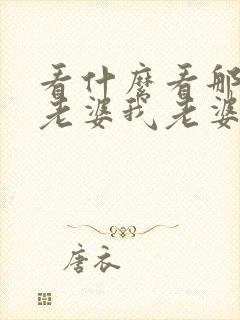 看什麼看那
老婆我老婆
唐衣